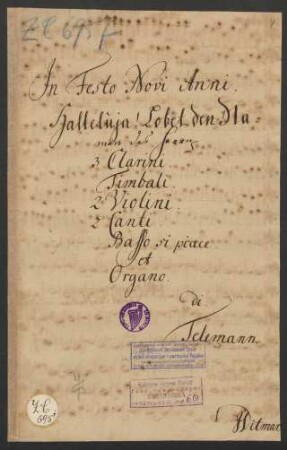 ZC 695 f
In Festo Novi Anni.
Halleluja! Lobet den Na-
men des Herrn
3 Clarini
Timbali
2 Violini
2 Canti
Basso si piace
et
Organo.
di
Telemann.
ZC
695
Ditmar